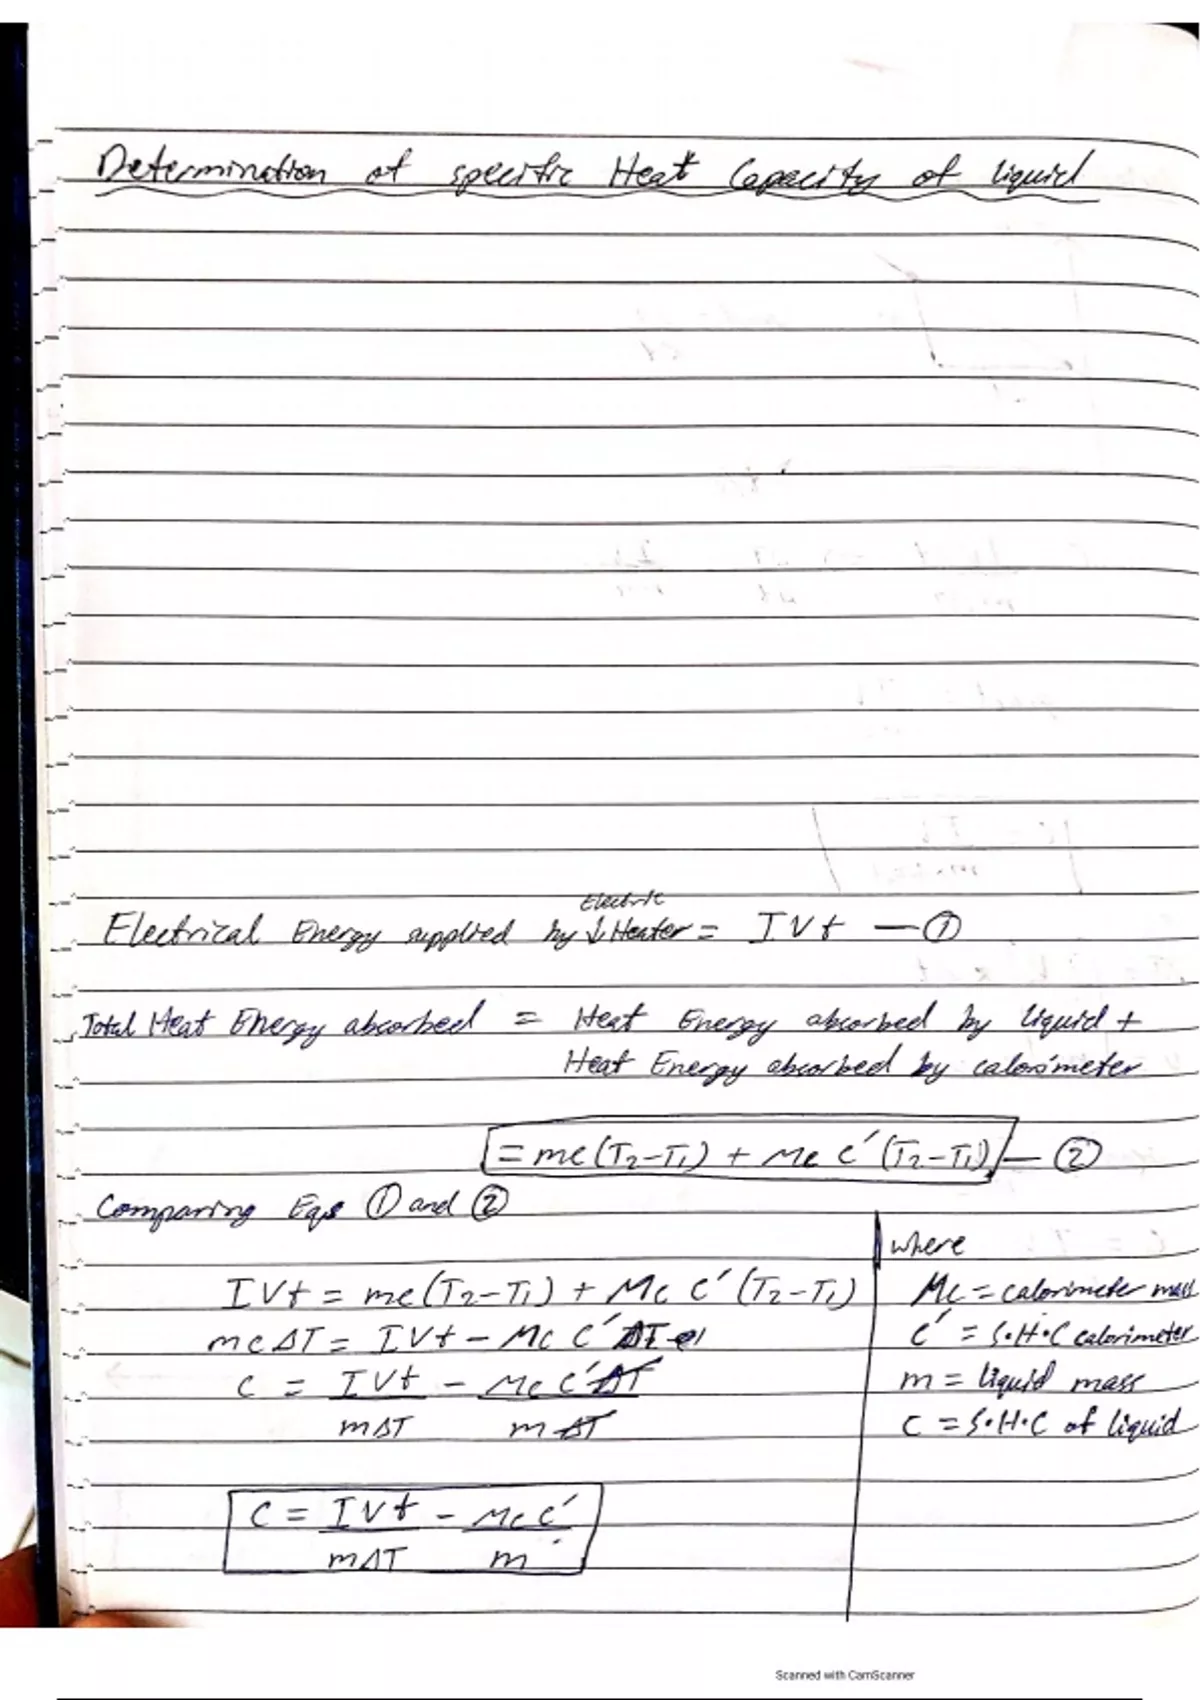 Determination of specific Heat Capacity of liquid
Electric
Electrical Energy supplied by ↓ Heater = IVt — ①
Total Heat Energy absorbed = Heat Energy absorbed by liquid +
Heat Energy absorbed by calorimeter
= mc(T₂-T₁) + Mc C′(T₂-T₁) — ②
Comparing Eqs ① and ②
IVt = mc(T₂-T₁) + Mc C′(T₂-T₁)
mcΔT = IVt - Mc C′ΔT
c = IVt/mΔT - Mc C′ΔT/mΔT
C = IVt/mΔT - Mc C′/m
where
Mc = calorimeter mass
C′ = S.H.C calorimeter
m = liquid mass
C = S.H.C of liquid
Scanned with CamScanner